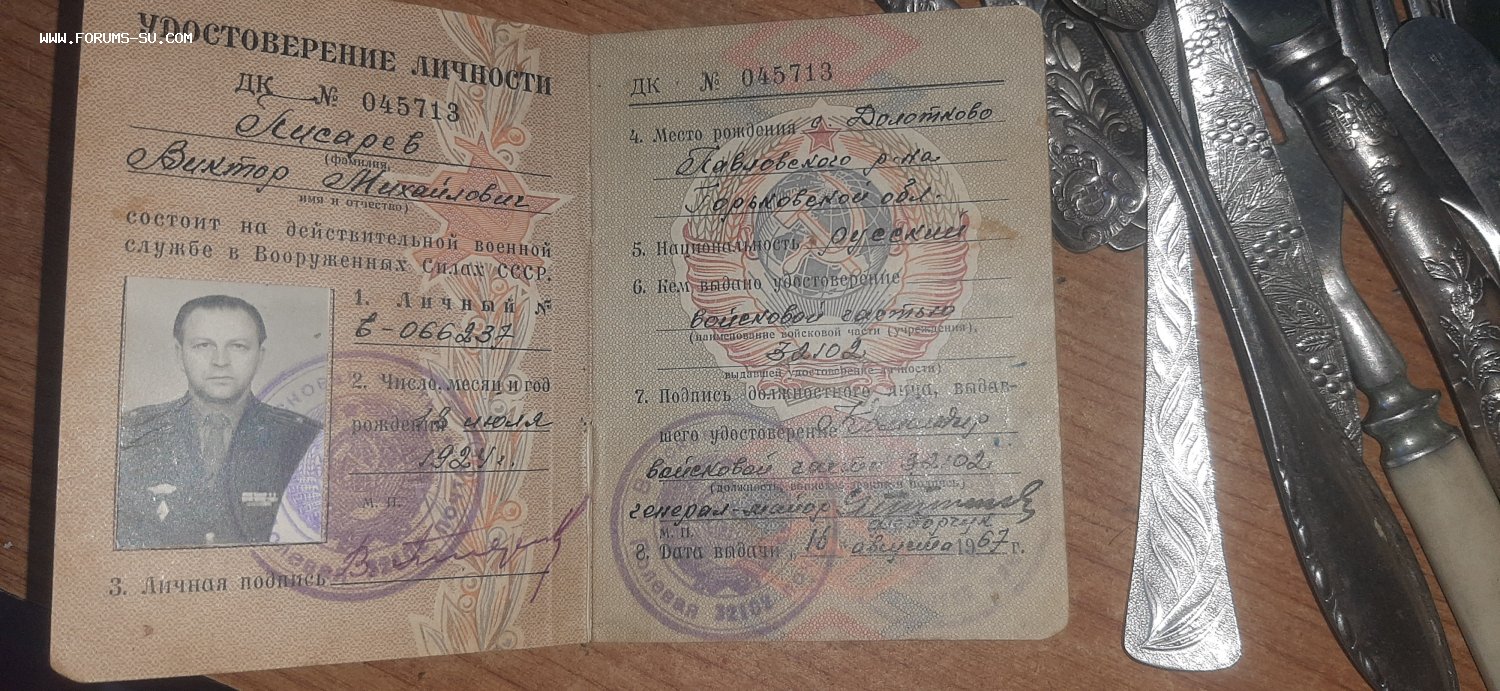 WWW.FORUMS-SU.COM
УДОСТОВЕРЕНИЕ ЛИЧНОСТИ
ДК № 045713
Писарев
(фамилия,
Виктор Михайлович
имя и отчество)
состоит на действительной военной
службе в Вооруженных Силах СССР.
1. Личный №
Б-066237
2. Число, месяц и год
рождения 18 июля
1924 г.
М. П.
3. Личная подпись
ДК № 045713
4. Место рождения д. Долотково
Павловского р-на
Горьковской обл.
5. Национальность русский
6. Кем выдано удостоверение
войсковой частью
(наименование войсковой части (учреждения),
32102
выдавшей удостоверение личности)
7. Подпись должностного лица, выдав-
шего удостоверение Командир
войсковой части 32102
(должность, воинское звание и подпись)
генерал-майор
М. П.
8. Дата выдачи „16 августа 1967 г.